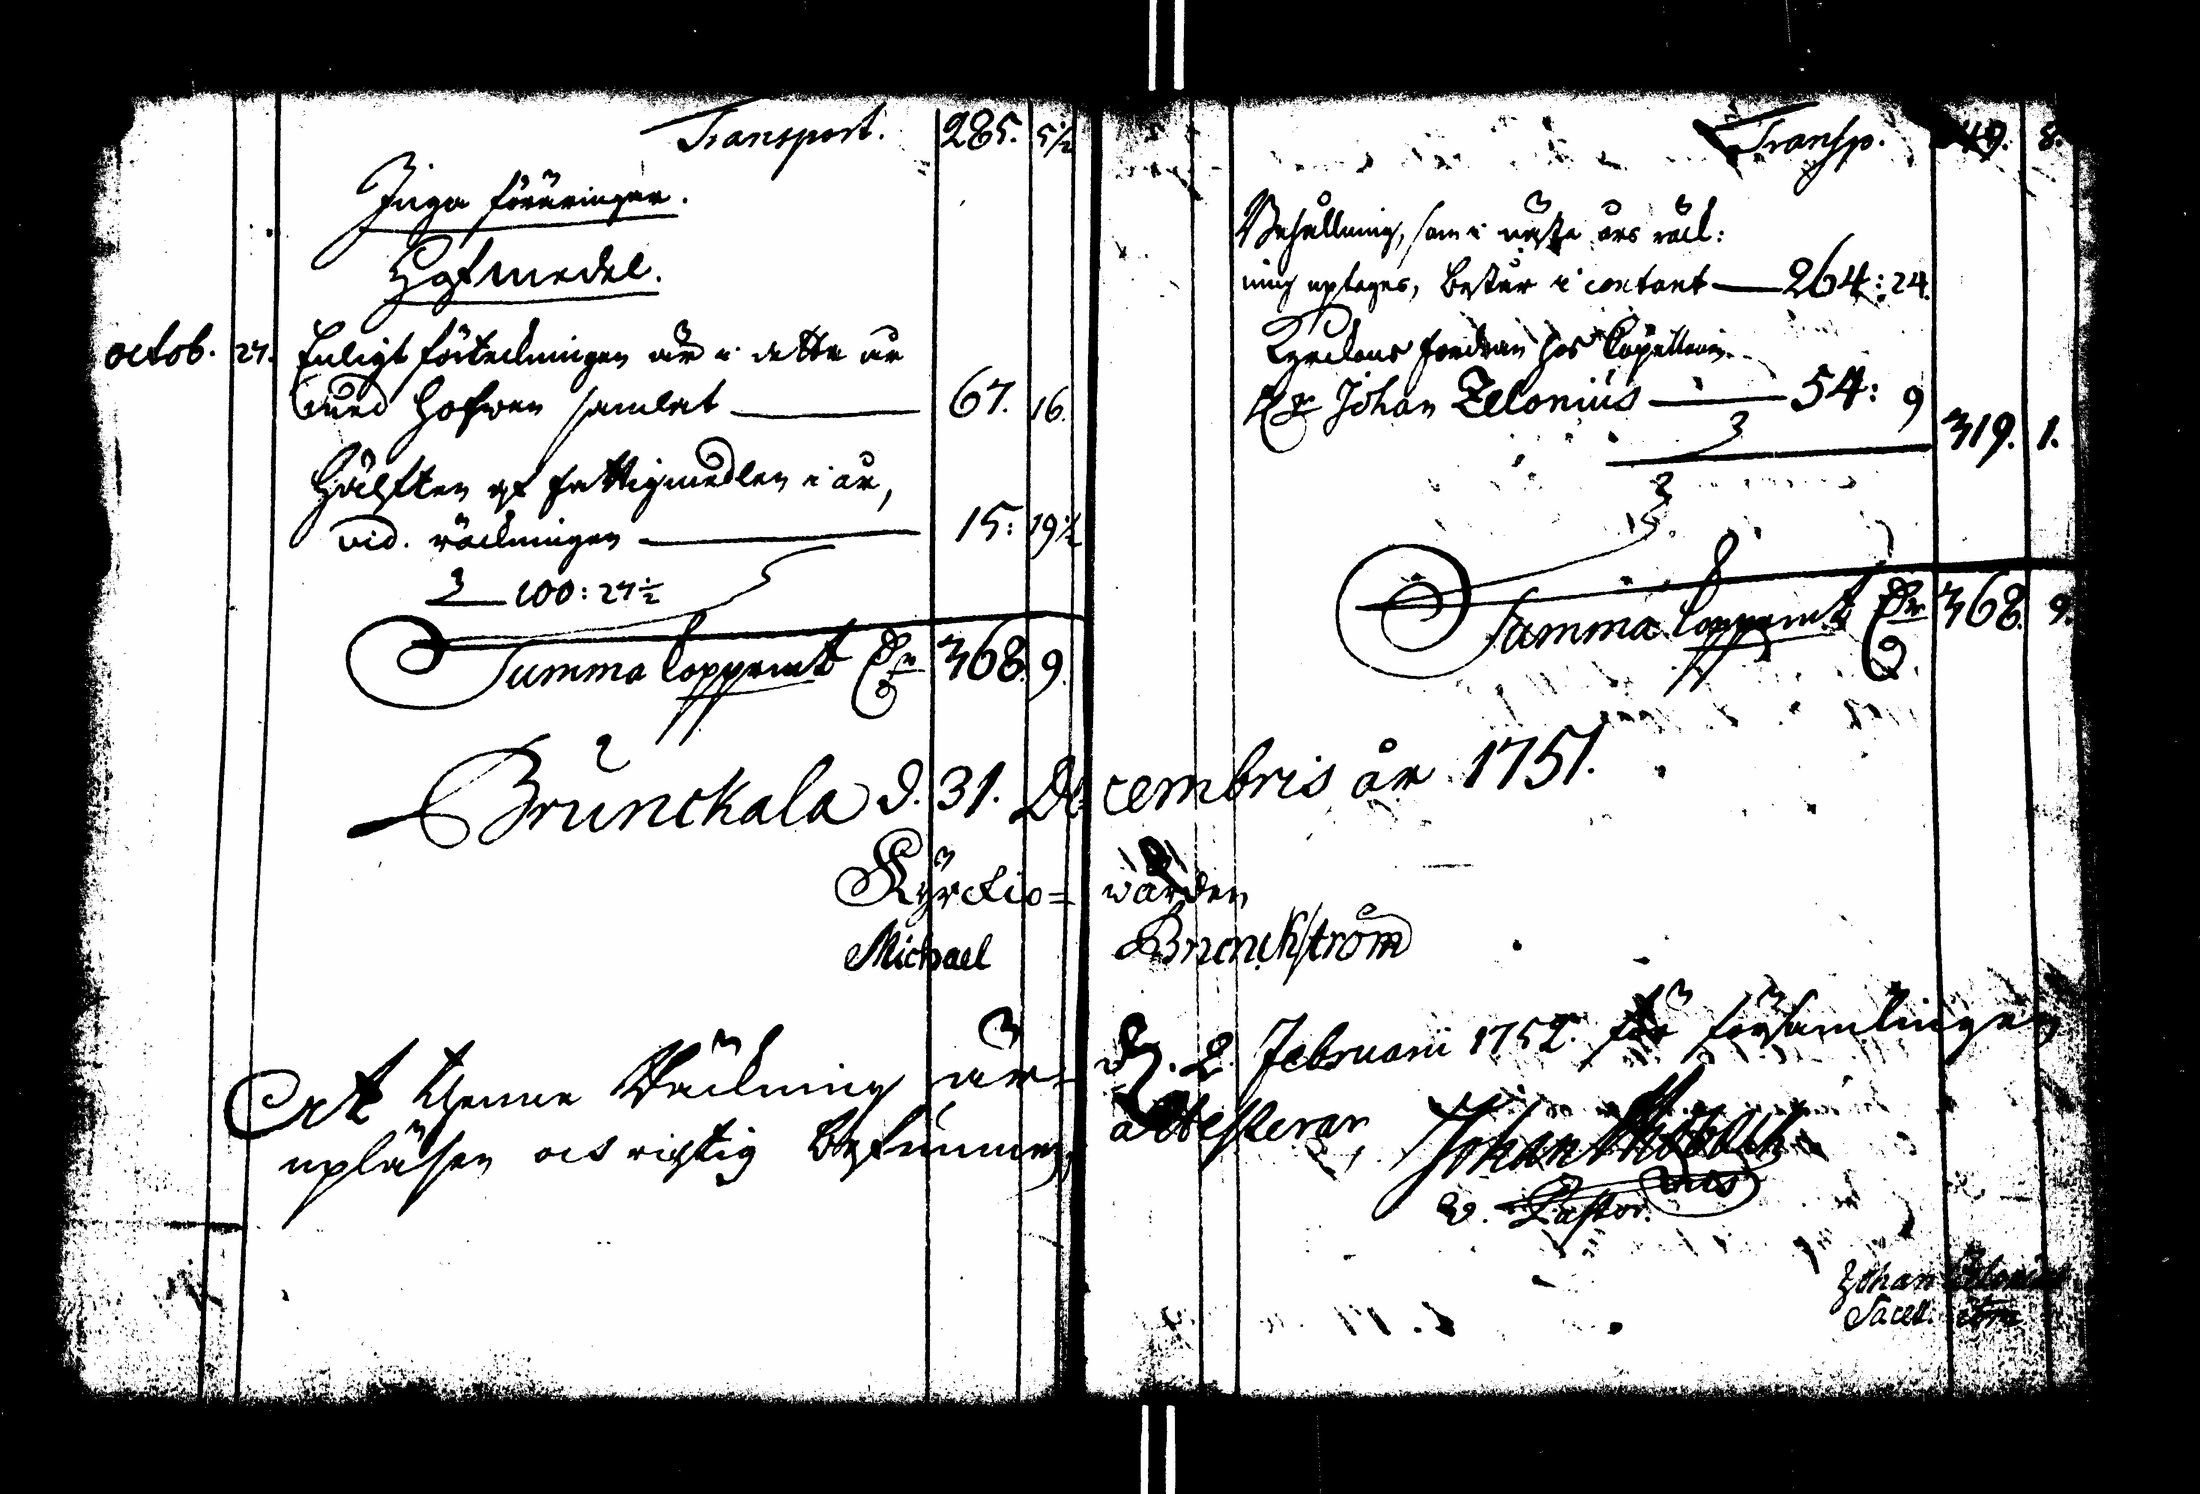 Transport. 285. 5½
Inga föräringar.
Hafmedel.
octob. 27. Enligt förteckningen är i detta år
med Hofwen samlat — 67. 16.
Hälften af fattigmedlen i år,
vid. räckningen — 15: 19½
100: 27½
Summa Kopparmt Dr 368. 9.
Transp. 49. 8.
Behållning, som i nästa års räck:
ning uptages, består i contant — 264: 24.
Kyrckans fordran hos Capellan
Hr Johan Zelonius — 54: 9
319. 1.
Summa Kopparmt Dr 368. 9.
Brunckala d. 31. Decembris år 1751.
Kyrckio= wärden
Michael Brunckström
At thenne Räckning är d. 2. Februarii 1752. för församlingen
upläsen och richtig befunnen, attesterar Johan
v. Pastor.
Johan Zelonius
Sacell.